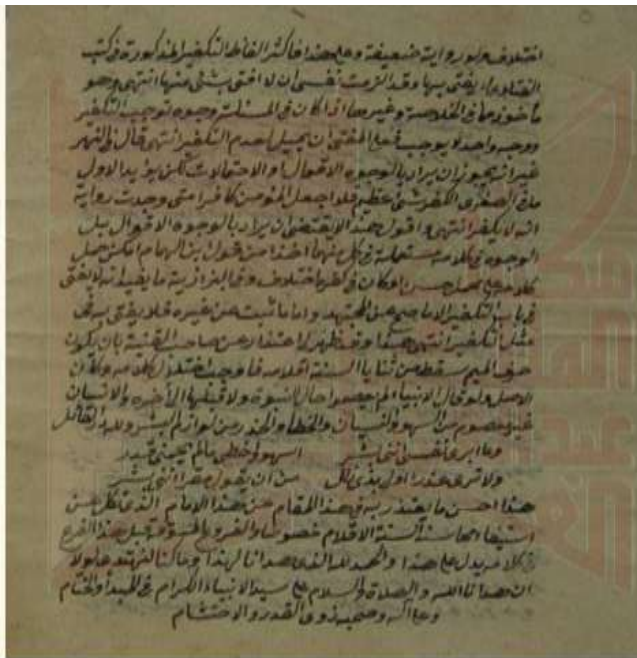 اختلاف ولو رواية ضعيفة وعلى هذا فاكثر الفاظ التكفير المذكورة في كتب
الفتاوى لا يفتى بها وقد الزمت نفسي ان لا افتى بشئ منها انتهى وهو
مأخوذ مما في الخلاصة وغيرها اذا كان في المسئلة وجوه توجب التكفير
ووجه واحد لا يوجب فعلى المفتى ان يميل لعدم التكفير انتهى قال في النهر
غير انه يجوز ان يراد بالوجوه الاقوال او الاحتمالات لكن يؤيد الاول
ما في الصغرى الكفر شئ عظيم فلا اجعل المؤمن كافرا متى وجدت رواية
انه لا يكفر انتهى واقول هذا لا يقتضى ان يراد بالوجوه الاقوال بل
الوجوه في كلامه مستعملة في كل منهما اخذا من قول بن الهمام امكن حمل
كلامه على محمل حسن او كان في كفره اختلاف وفي البزازية ما يفيد انه لا يفتى
في باب التكفير الا بما صح عن المجتهد واما ما ثبت عن غيره فلا يفتى به في
مثل التكفير انتهى هذا وقد ظهر لى اعتذار عن صاحب القنية بان يكون
حرف الميم سقط من ثنايا السنة اقلامه فاوجب اختلال كلامه وكان
الاصل ولو قال الانبياء لم يعصوا حال النبوة ولا قبلها الى آخره والانسان
غير معصوم من السهو والنسيان والخطا والحذر من لوازم البشر ولله در القائل
وما ابرئ نفسي اننى بشر اسهو واخطى مالم يحمنى قدر
ولا ترى عذرا اولى بذى زلل من ان يقول مقرا اننى بشر
هذا احسن ما يعتذر به في هذا المقام عن هذا الامام الذى تكل عن
استيفاء محاسنه السنة الاقلام خصوصا والفروع المسوقة قبل هذا الفرع
في كلامه يدل على هذا والحمد لله الذى هدانا لهذا وما كنا لنهتدى لولا
ان هدانا الله والصلاة والسلام على سيد الانبياء الكرام في المبدأ والختام
وعلى آله وصحبه ذوى القدر والاحتشام